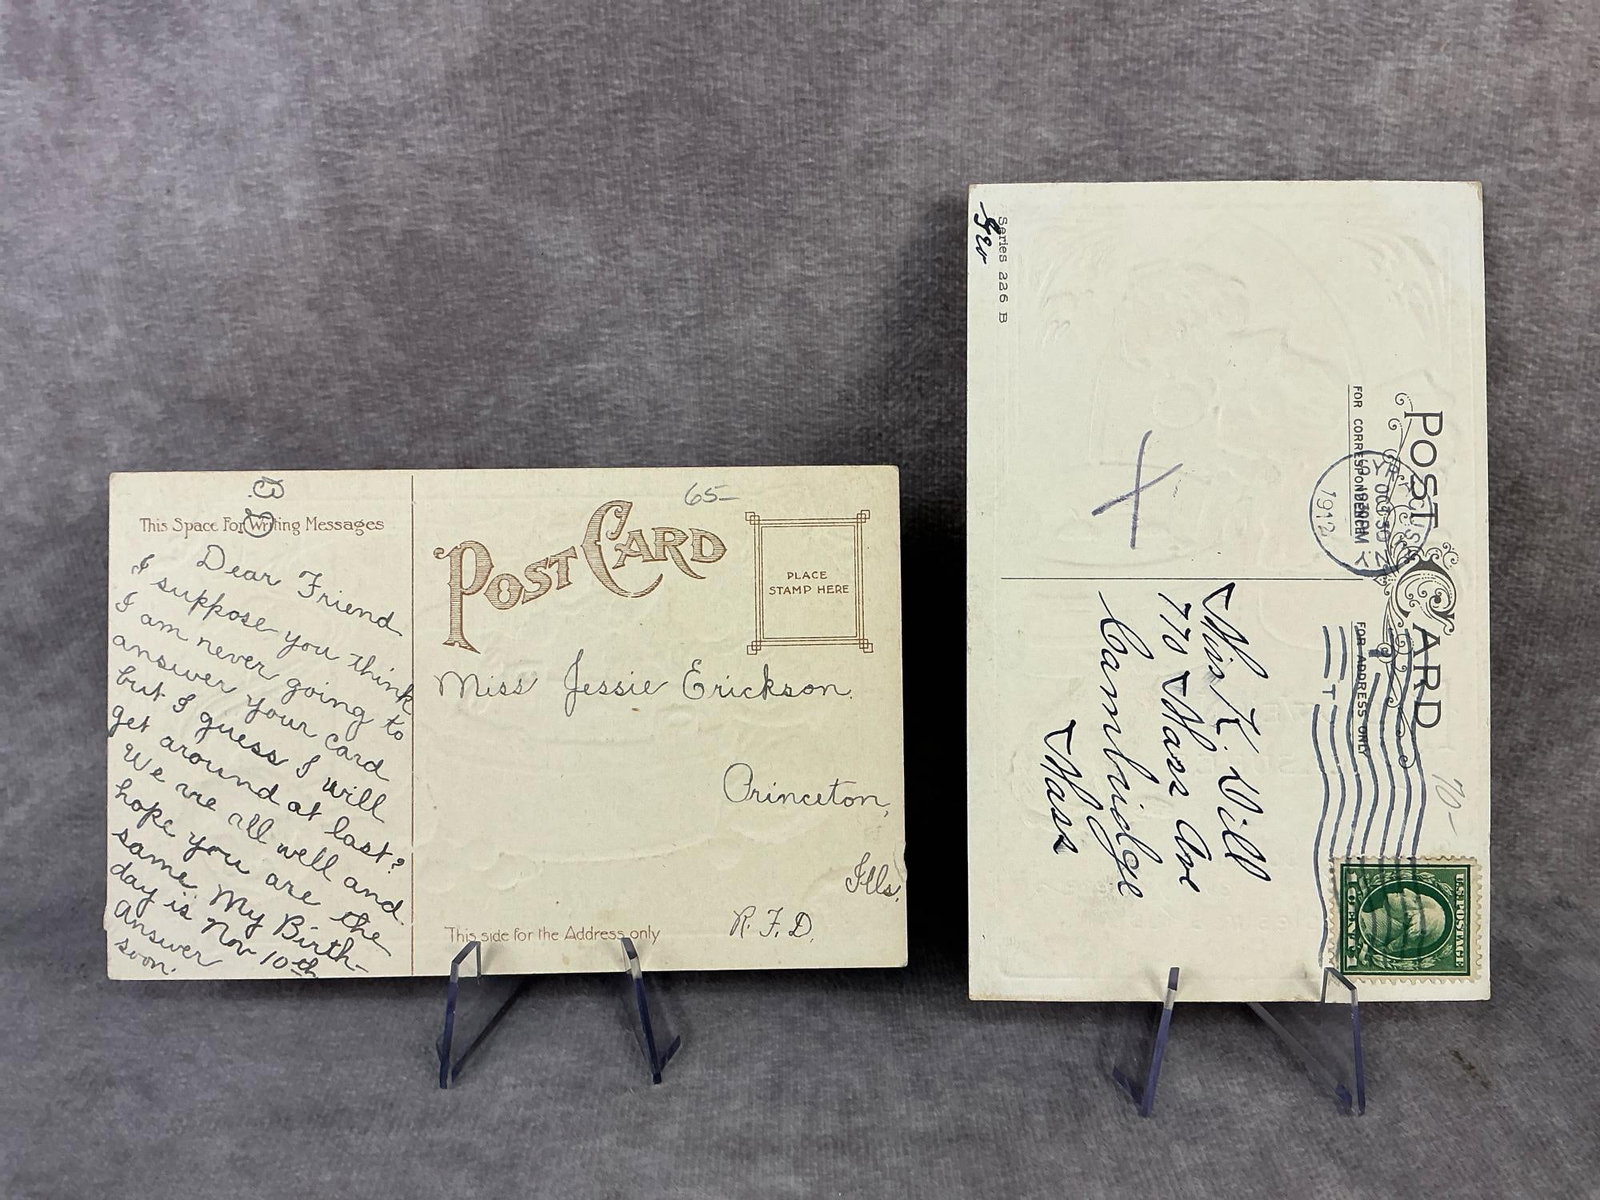 This Space For Writing Messages
Dear Friend
I suppose you think
I am never going to
answer your card
but I guess I will
get around at last?
We are all well and
hope you are the
same. My Birth-
day is Nov 10th
Answer
soon.
65-
POST CARD
PLACE
STAMP HERE
Miss Jessie Erickson.
Princeton,
Ills.
R.F.D.
This side for the Address only
Series 226 B
Geo
POST CARD
FOR CORRESPONDENCE
FOR ADDRESS ONLY
OCT 30
1912
70-
U.S. POSTAGE
1 CENT 1
Miss K. Will
Mass Ave
Cambridge
Mass